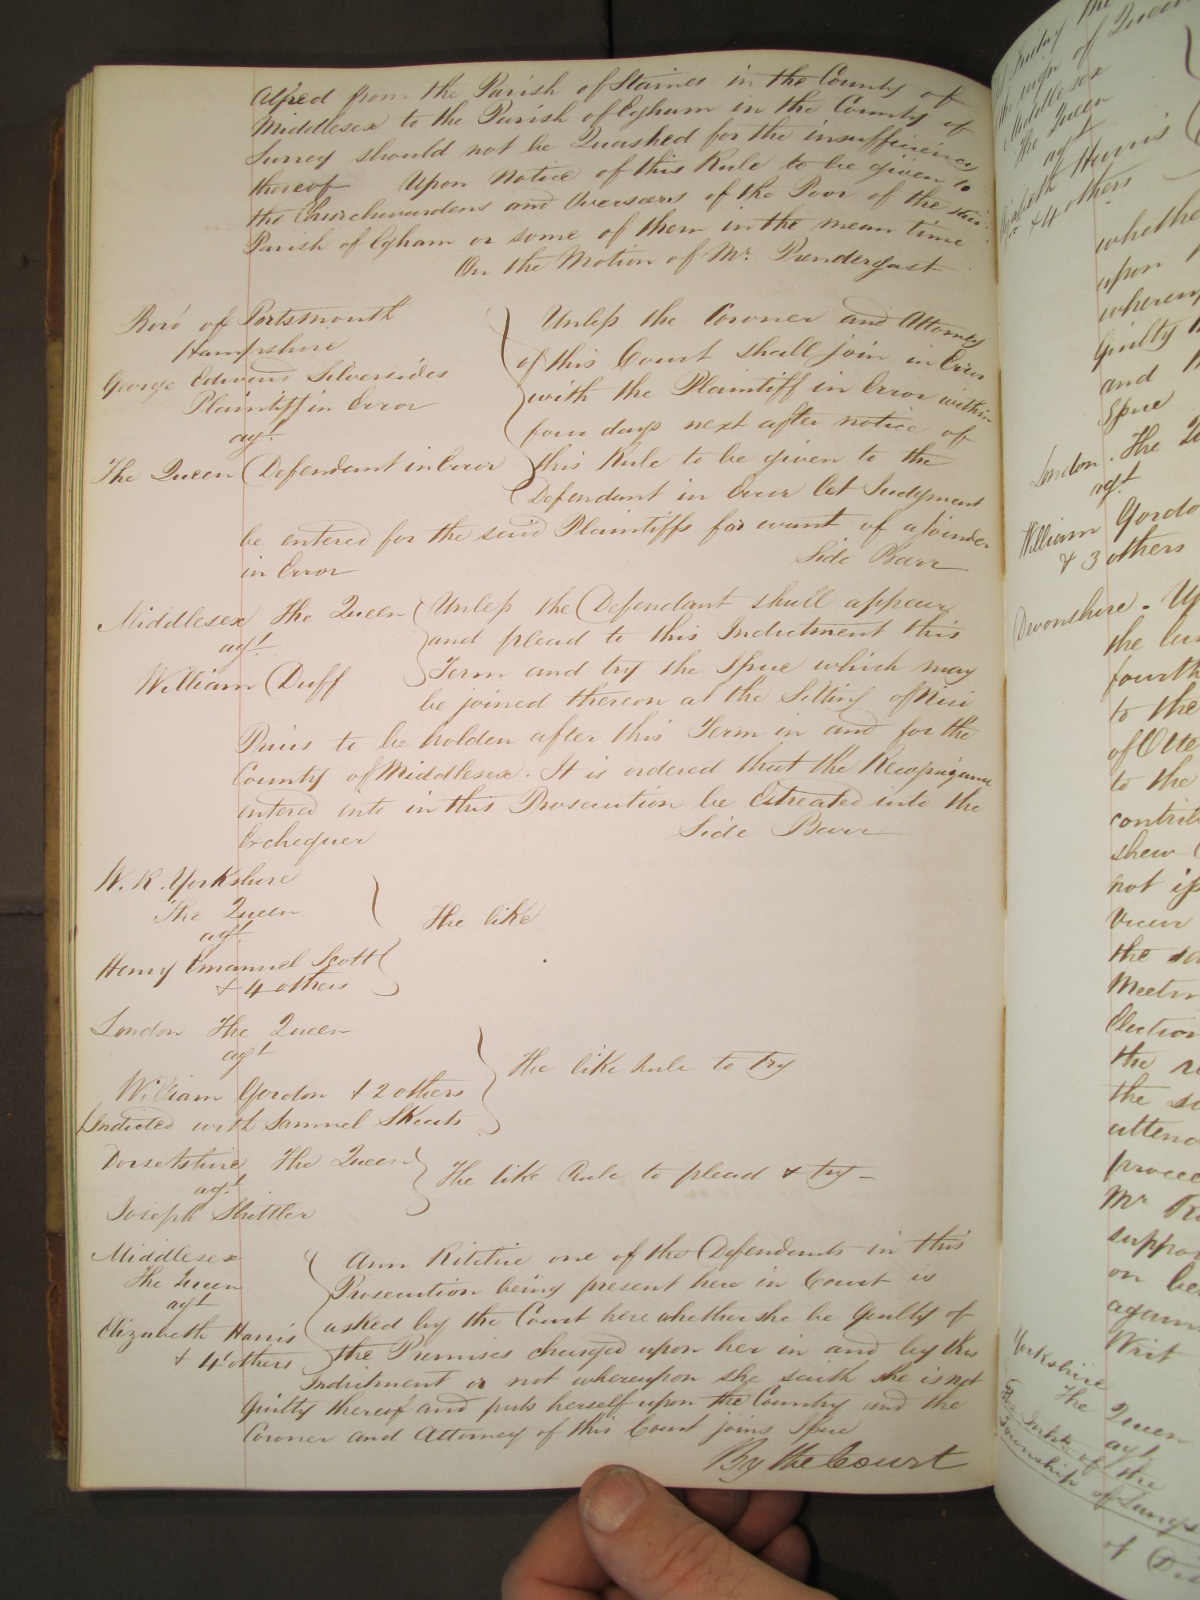 Alfred from the Parish of Staines in the County of
Middlesex to the Parish of Egham in the County of
Surrey should not be Quashed for the insufficiency
thereof Upon Notice of this Rule to be given to
the Churchwardens and Overseers of the Poor of the said
Parish of Egham or some of them in the mean time
On the Motion of Mr. Prendergast
Boro' of Portsmouth
Hampshire
George Edward Silversides
Plaintiff in Error
agt.
The Queen Defendant in Error
Unless the Coroner and Attorney
of this Court shall join in Error
with the Plaintiff in Error within
four days next after notice of
this Rule to be given to the
Defendant in Error let Judgment
be entered for the said Plaintiffs for want of a joinder
in Error
Side Barr
Middlesex The Queen
agt.
William Duff
Unless the Defendant shall appear
and plead to this Indictment this
Term and try the Issue which may
be joined thereon at the Sitting of Nisi
Prius to be holden after this Term in and for the
County of Middlesex. It is ordered that the Recognizance
entered into in this Prosecution be Estreated into the
Exchequer
Side Barr
W. R. Yorkshire
The Queen
agt
Henry Emanuel Scott
& 4 others
The like
London The Queen
agt
William Gordon & 2 others
Indicted with Samuel
The like Rule to try
Dorsetshire The Queen
agt
Joseph Shittler
The like Rule to plead & try
Middlesex
The Queen
agt
Elizabeth Harris
& 4 others
Ann one of the Defendants in this
Prosecution being present here in Court is
asked by the Court here whether she be Guilty of
the Premises charged upon her in and by this
Indictment or not whereupon she saith she is not
Guilty thereof and puts herself upon the Country and the
Coroner and Attorney of this Court joins Issue
By the Court
Friday the
the reign of Queen
Middlesex
The Queen
agt
Harris
& 4 others
upon
Guilty
and
Issue
London. The
agt
William
& 3 others
Devonshire.
the
fourth
to the
to the
shew
not
the
Election
the
the
Mr
on
Writ
Yorkshire
The Queen
agt
the
Township of
of